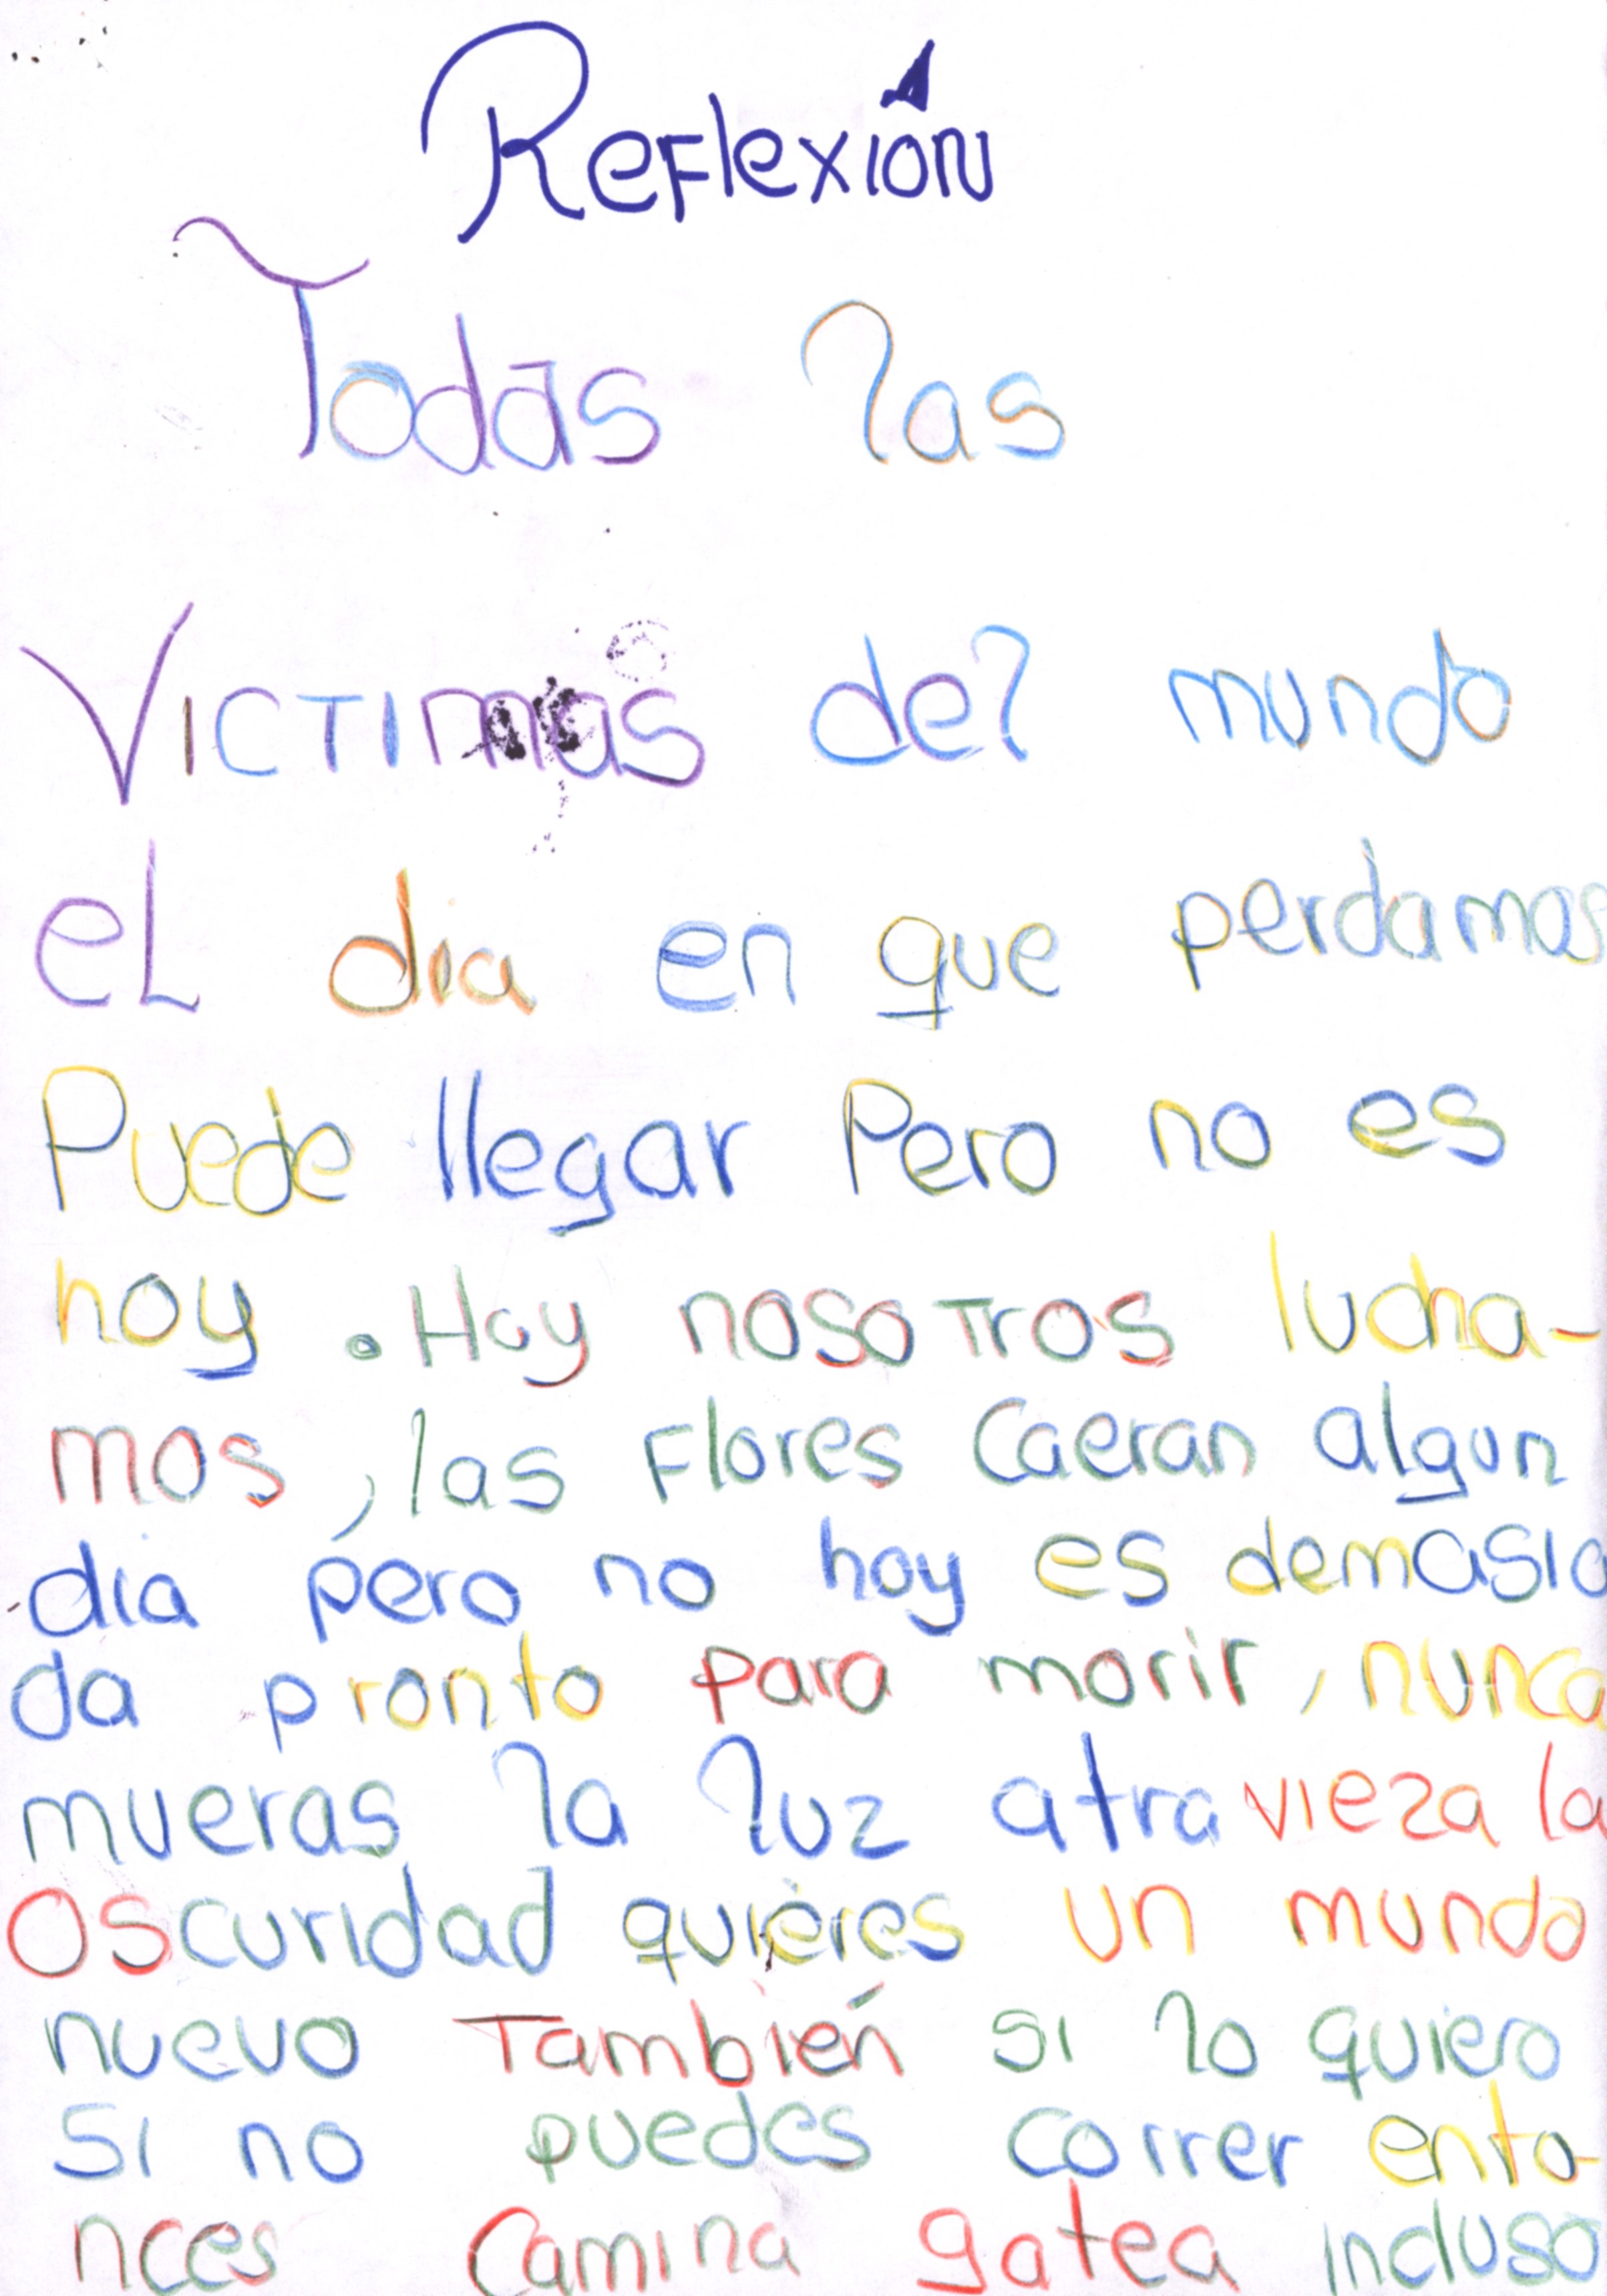 Reflexión
Todas las
Victimas del mundo
el dia en que perdamos
Puede llegar Pero no es
hoy . Hoy nosotros lucha-
mos , las Flores Caeran algun
dia pero no hoy es demasia
da pronto para morir , nunca
mueras la luz atravieza la
Oscuridad quieres un mundo
nuevo También si lo quiero
Si no puedes correr ento-
nces Camina gatea incluso